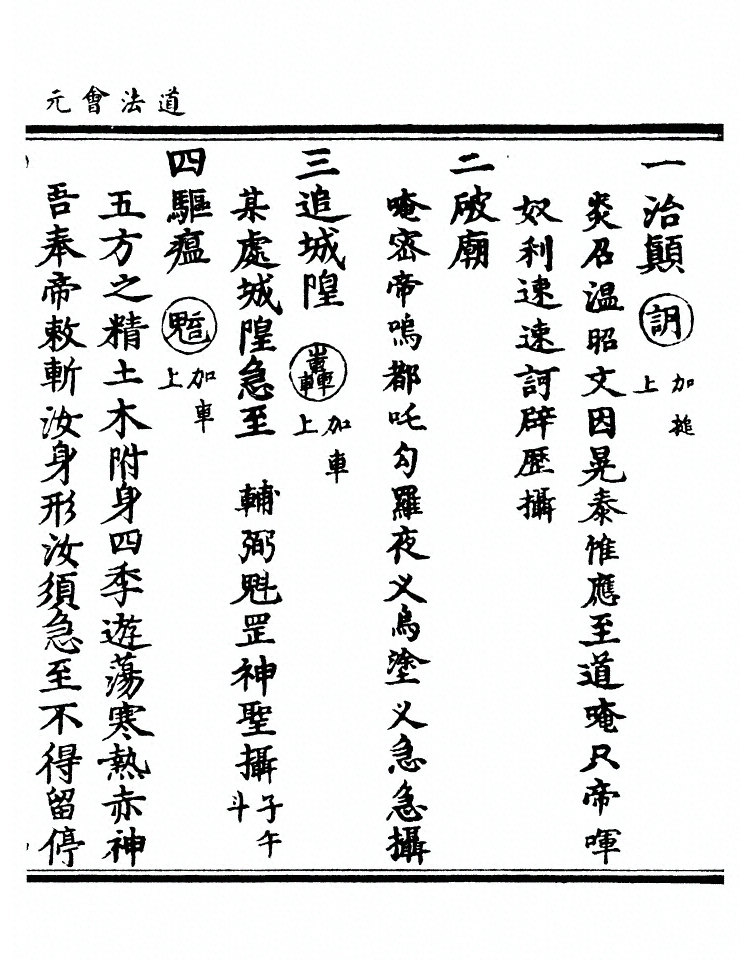 道法會元
一治顛 䚯 加搥上
炎召溫昭文因晃泰惟應至道唵只帝㖷
奴利速速訶辟歷攝
二破廟
唵宻帝嗚都吒勾羅夜义烏塗义急急攝
三追城隍 加車上
某處城隍急至 輔弼魁罡神聖攝子午斗
四驅瘟 加車上
五方之精土木附身四季遊蕩寒熱赤神
吾奉帝敕斬汝身形汝須急至不得留停